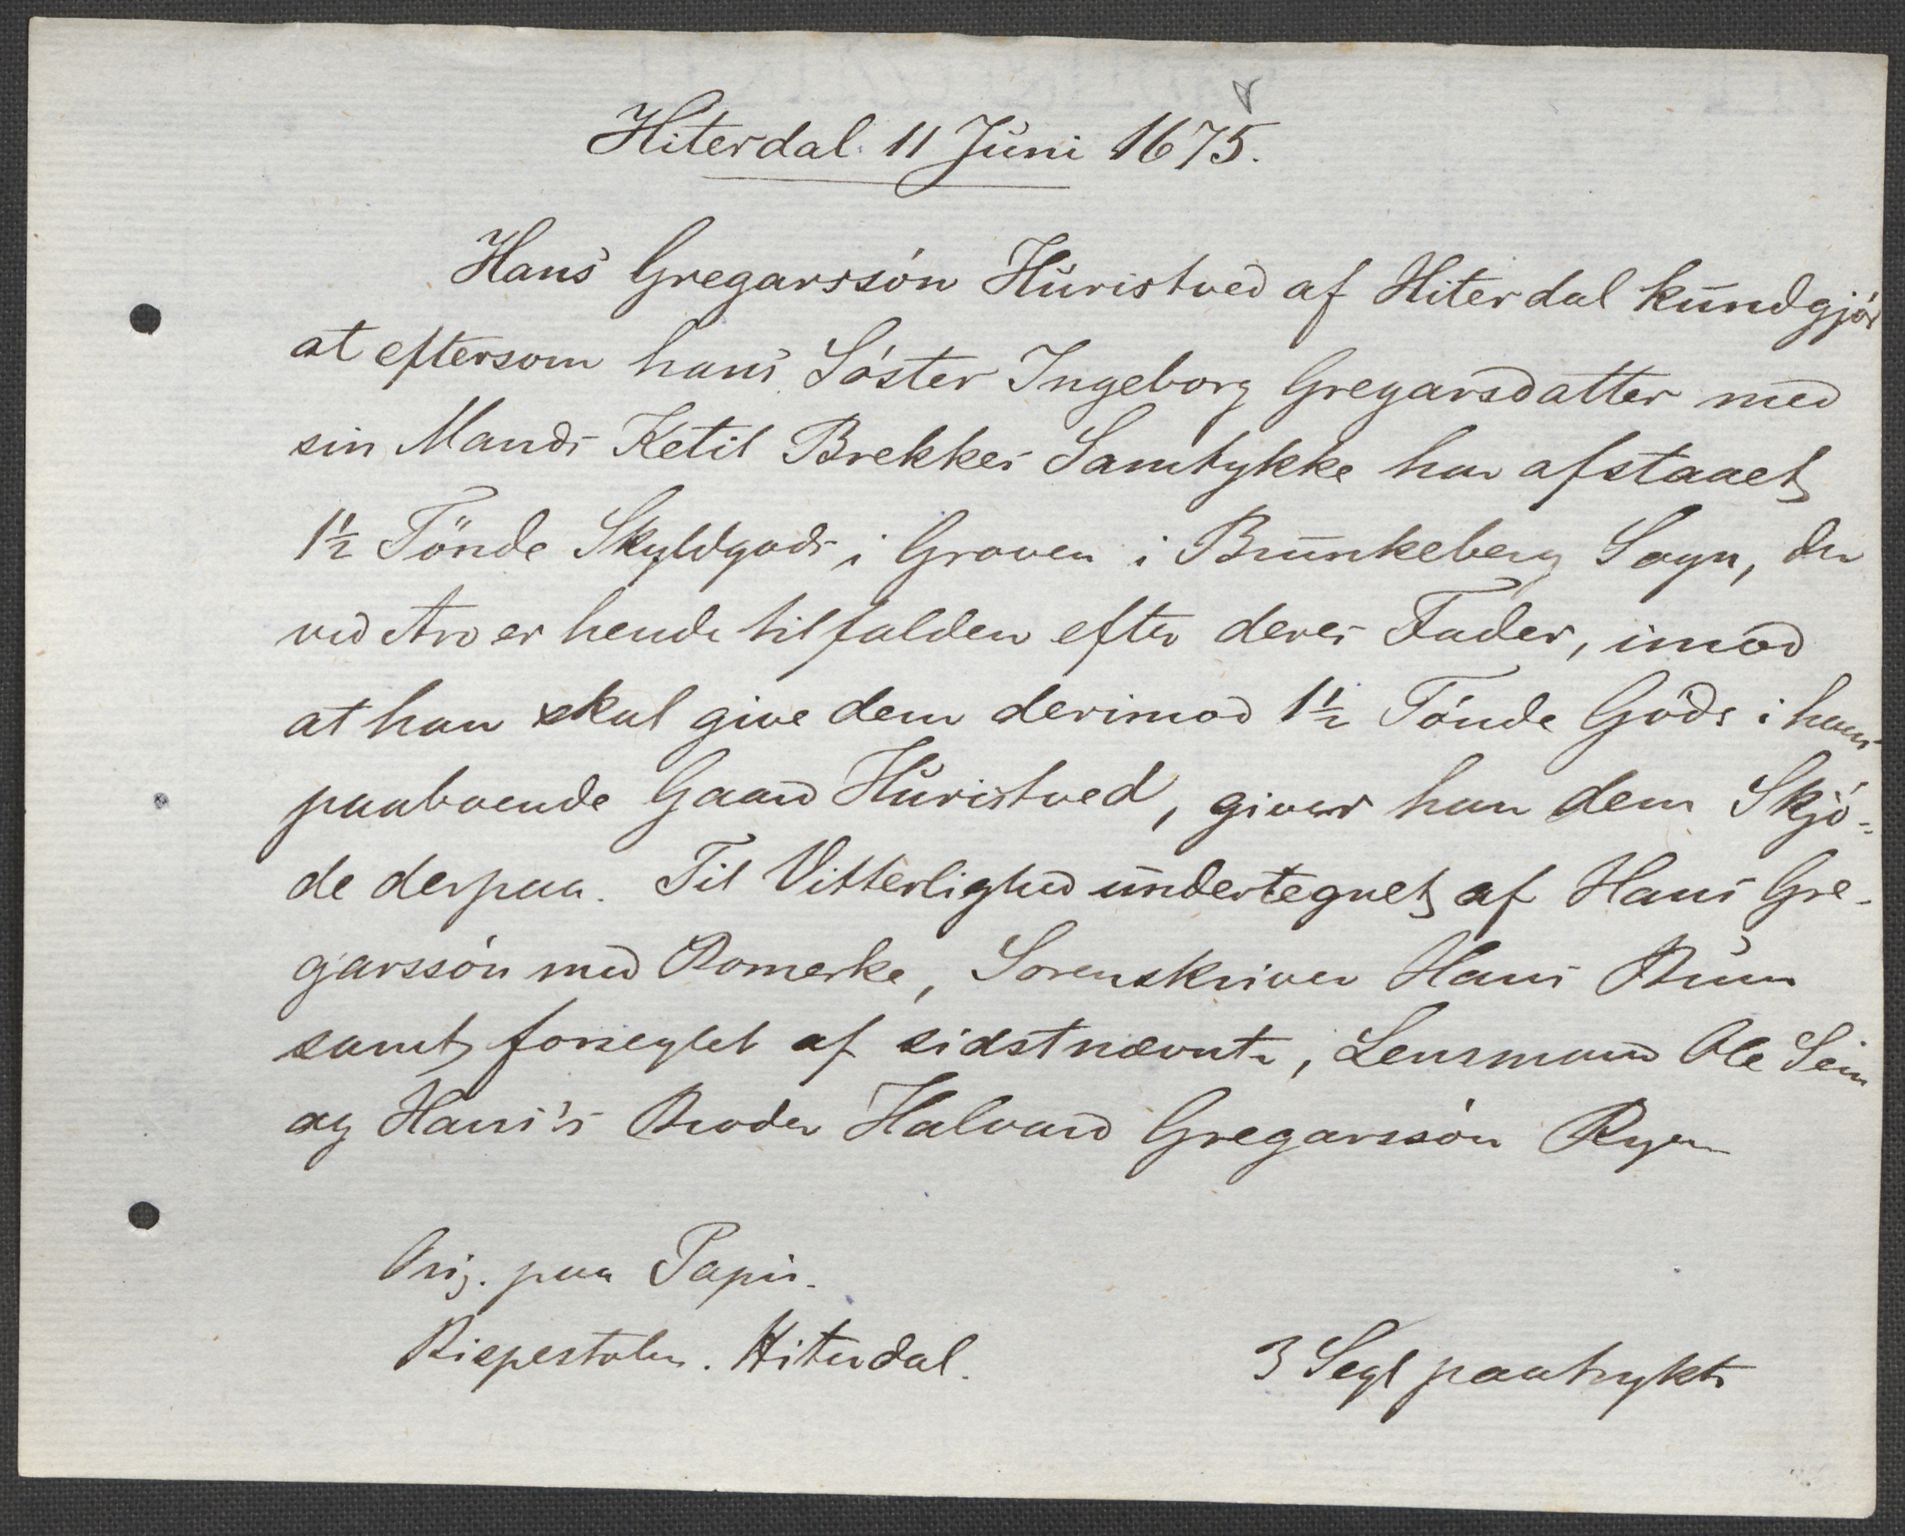 Hiterdal 11 Juni 1675.
Hans Gregarssön Huristved af Hiterdal kundgjör
at eftersom hans Söster Ingeborg Gregarsdatter med
sin Mands Ketil Brekkes Samtykke har afstaaet
1½ Tönde Skyldgods i Graven i Brunkeberg Sogn, der
ved Arv er hende tilfalden efter deres Fader, imod
at han skal give dem derimod 1½ Tönde Gods i hans
paaboende Gaard Huristved, giver han dem Skjö-
de derpaa. Til Vitterlighed undertegnet af Hans Gre-
garssön med Bomerke, Sorenskriver Hans Buun
samt forseglet af sidstnævnte, Lensmand Ole Sem
og Hans's Broder Halvard Gregarssön Ryen
Orig. paa Papir.
Riepestolen. Hiterdal.
3 Segl paatrykte